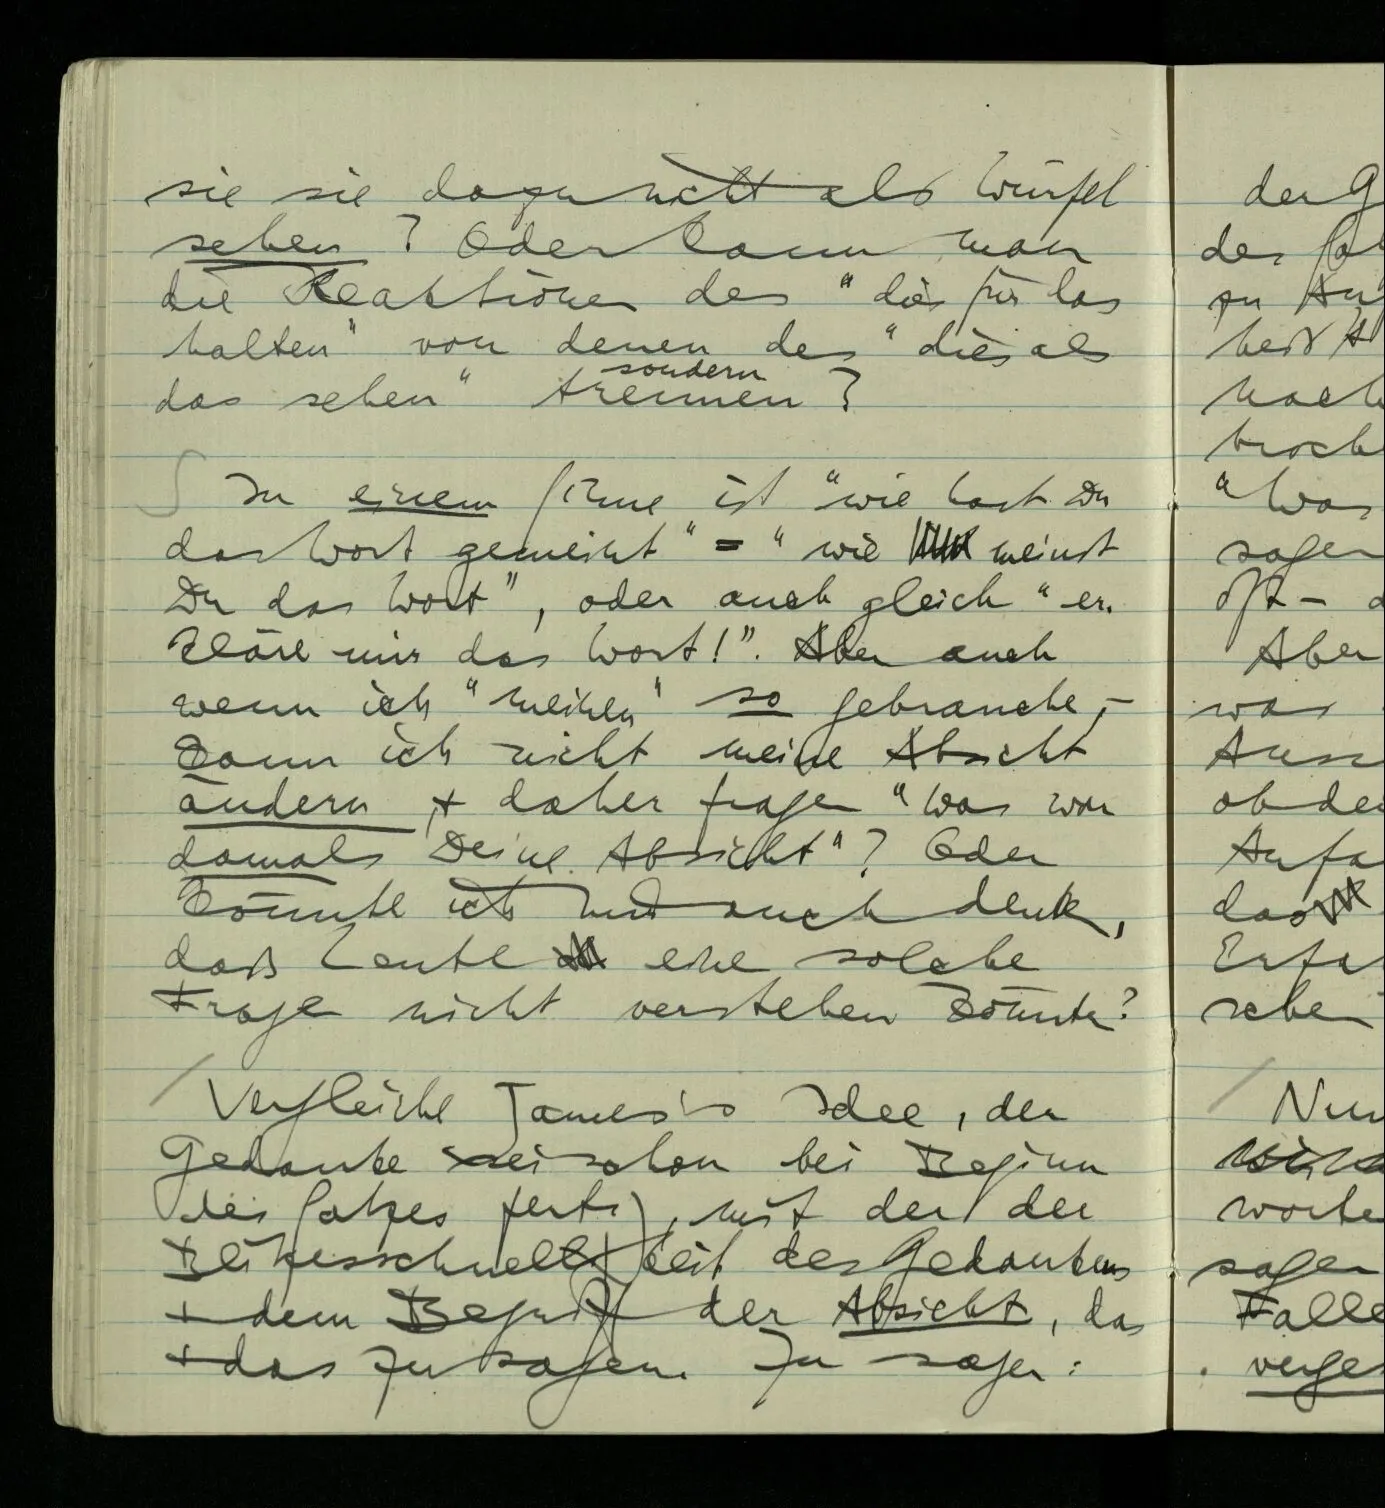 sie sie dazu nicht als Würfel
sehen? Oder kann man
die Reaktionen des "dies für das
halten" von denen des "dies als
sondern
das sehen" trennen?
In einem Sinne ist "wie hast Du
das Wort gemeint" = "wie meinst
Du das Wort", oder auch gleich "er-
kläre mir das Wort!". Aber auch
wenn ich "meinen" so gebrauche,-
kann ich nicht meine Absicht
ändern, + daher fragen "Was war
damals Deine Absicht"? Oder
könnte ich mir auch denken,
daß Leute eine solche
Frage nicht verstehen könnten?
Vergleiche James's Idee, der
Gedanke sei schon bei Beginn
des Satzes fertig, mit der der
Blitzesschnelligkeit des Gedankens
+ dem Begriff der Absicht, das
+ das zu sagen. Zu sagen:
der G
des Sa
zu An
heißt
nach
broch
"Was
sagen
oft –
Aber
was
Aus
ob de
Anfa
das
Erfa
schei
Nun
worte
sagen
Falle
verge